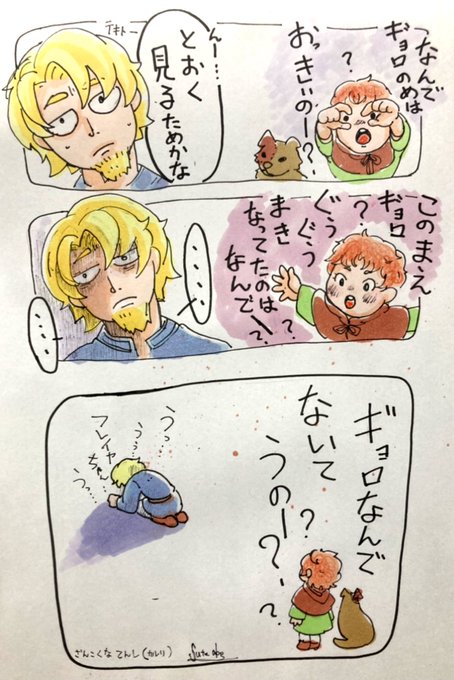 なんで
ギョロのめは
?
おっきいのー?
んー…
とおく
見るためかな
テキトー
このまえ
ギョロ
?
ぐうぐう
まき
なってたのは
なんでー?
?
‥‥
‥‥
ギョロなんで
ないて
?
うのー?
?
うっ…
うっ…
フレイヤ
ちゃん…
うっ…
ざんこくな てんし(カルリ)